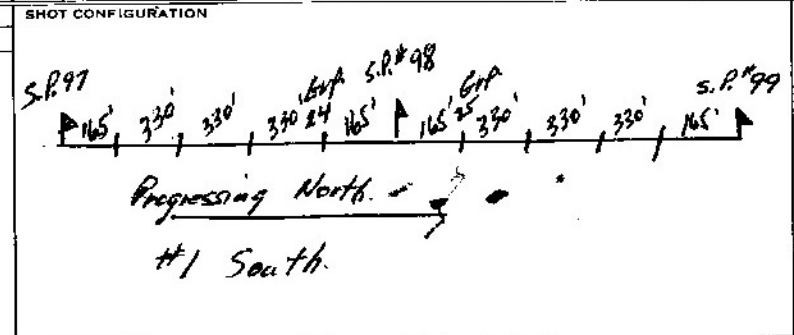 SHOT CONFIGURATION
S.P. 97 165' 330' 330' 330' Grp. 24 165' S.P.#98 165' Grp. 25 330' 330' 330' 165' S.P.#99
Progressing North.
#1 South.